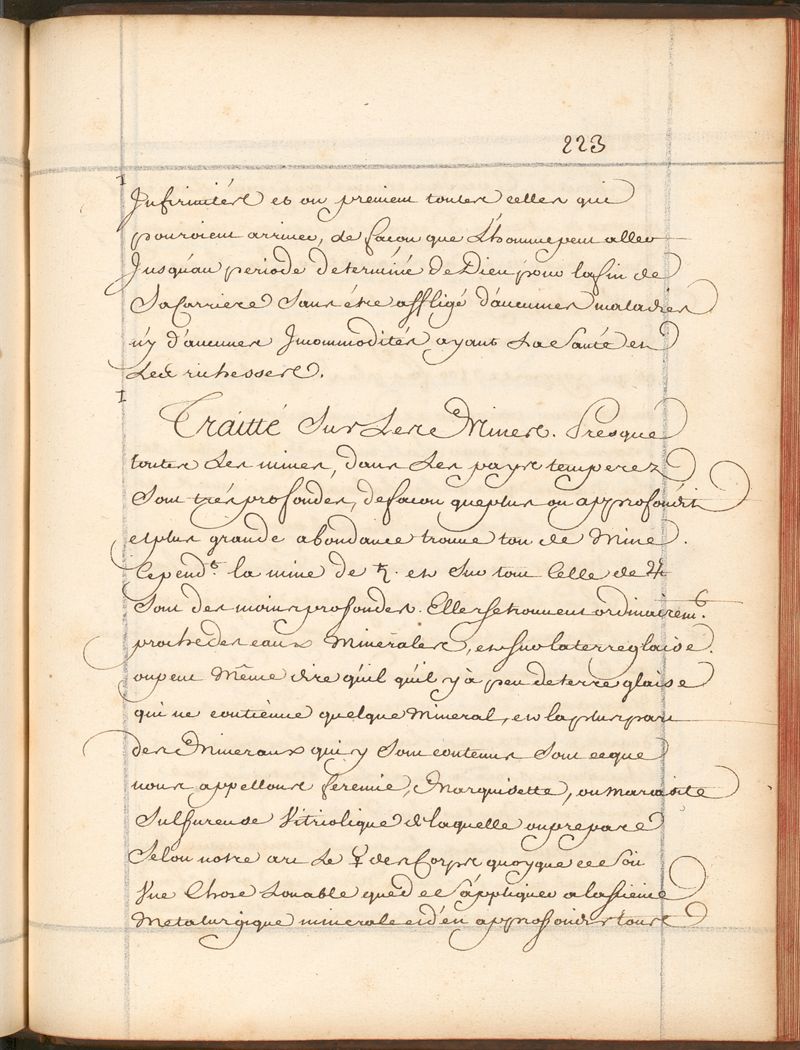 223
Infirmités et on previent toutes celles qui
pouroient arriver, de facon que L'homme peut aller
Jusqu'au periode determiné de Dieu pour la fin de
Sa Carriere Sans étre affligé d'aucunes maladies
n'y d'aucunes Jncommodités ayant La Santé et
Les richesses.
Traitté Sur Les Mines. Presque
toutes Les mines, dans Les pays temperez
Sont trés profondes, de facon que plus on approfondit
et plus grande abondance trouve ton de Mine.
Cepend.t la mine de ♄. et Sur tout Celle de ♃
Sont des moins profondes. Elles se trouvent ordinairem.t
proche des eaux Minérales, et sur la terre glaise.
on peut Même dire qu'il qu'il y à peu de terre glaise
qui ne contiénne quelque Mineral, et la plus part
des Mineraux qui y Sont contenus Sont ce que
nous appellons Marquisette, ou marcasite
Sulfureuse Vitriolique de laquelle on prepare
Selon notre art Le ☿ des Corps quoyque ce Soit
Vne Chose Louable que de S'appliquer a la Sience
Metalurgique minerale et d'en approfondir tous